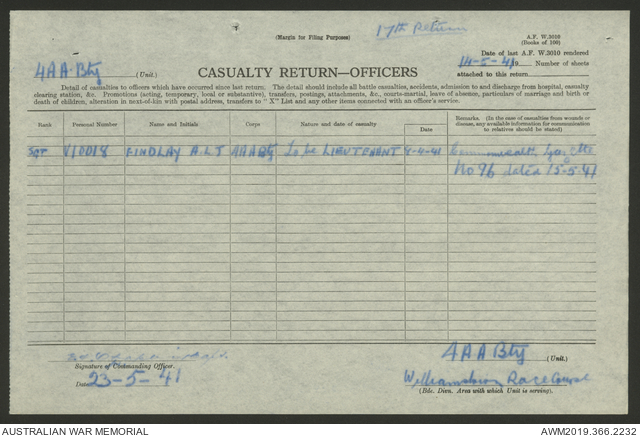 (Margin for Filing Purposes)
17th Return
A.F. W.3010
(Books of 100)
Date of last A.F. W.3010 rendered
14-5-41 Number of sheets
attached to this return
4 A A Bty (Unit.)
CASUALTY RETURN—OFFICERS
Detail of casualties to officers which have occurred since last return. The detail should include all battle casualties, accidents, admission to and discharge from hospital, casualty
clearing station, &c. Promotions (acting, temporary, local or substantive), transfers, postings, attachments, &c., courts-martial, leave of absence, particulars of marriage and birth or
death of children, alteration in next-of-kin with postal address, transfers to "X" List and any other items connected with an officer's service.
Rank Personal Number Name and Initials Corps Nature and date of casualty Date Remarks. (In the case of casualties from wounds or
disease, any available information for communication
to relatives should be stated)
Sgt V10018 FINDLAY A.L.T 4AABty To be LIEUTENANT 4-4-41 Commonwealth Gazette
No 96 dated 15-5-41
Signature of Commanding Officer.
Date 23-5-41
4 A A Bty (Unit.)
Williamstown Race Course
(Bde. Divn. Area with which Unit is serving).
AUSTRALIAN WAR MEMORIAL
AWM2019.366.2232